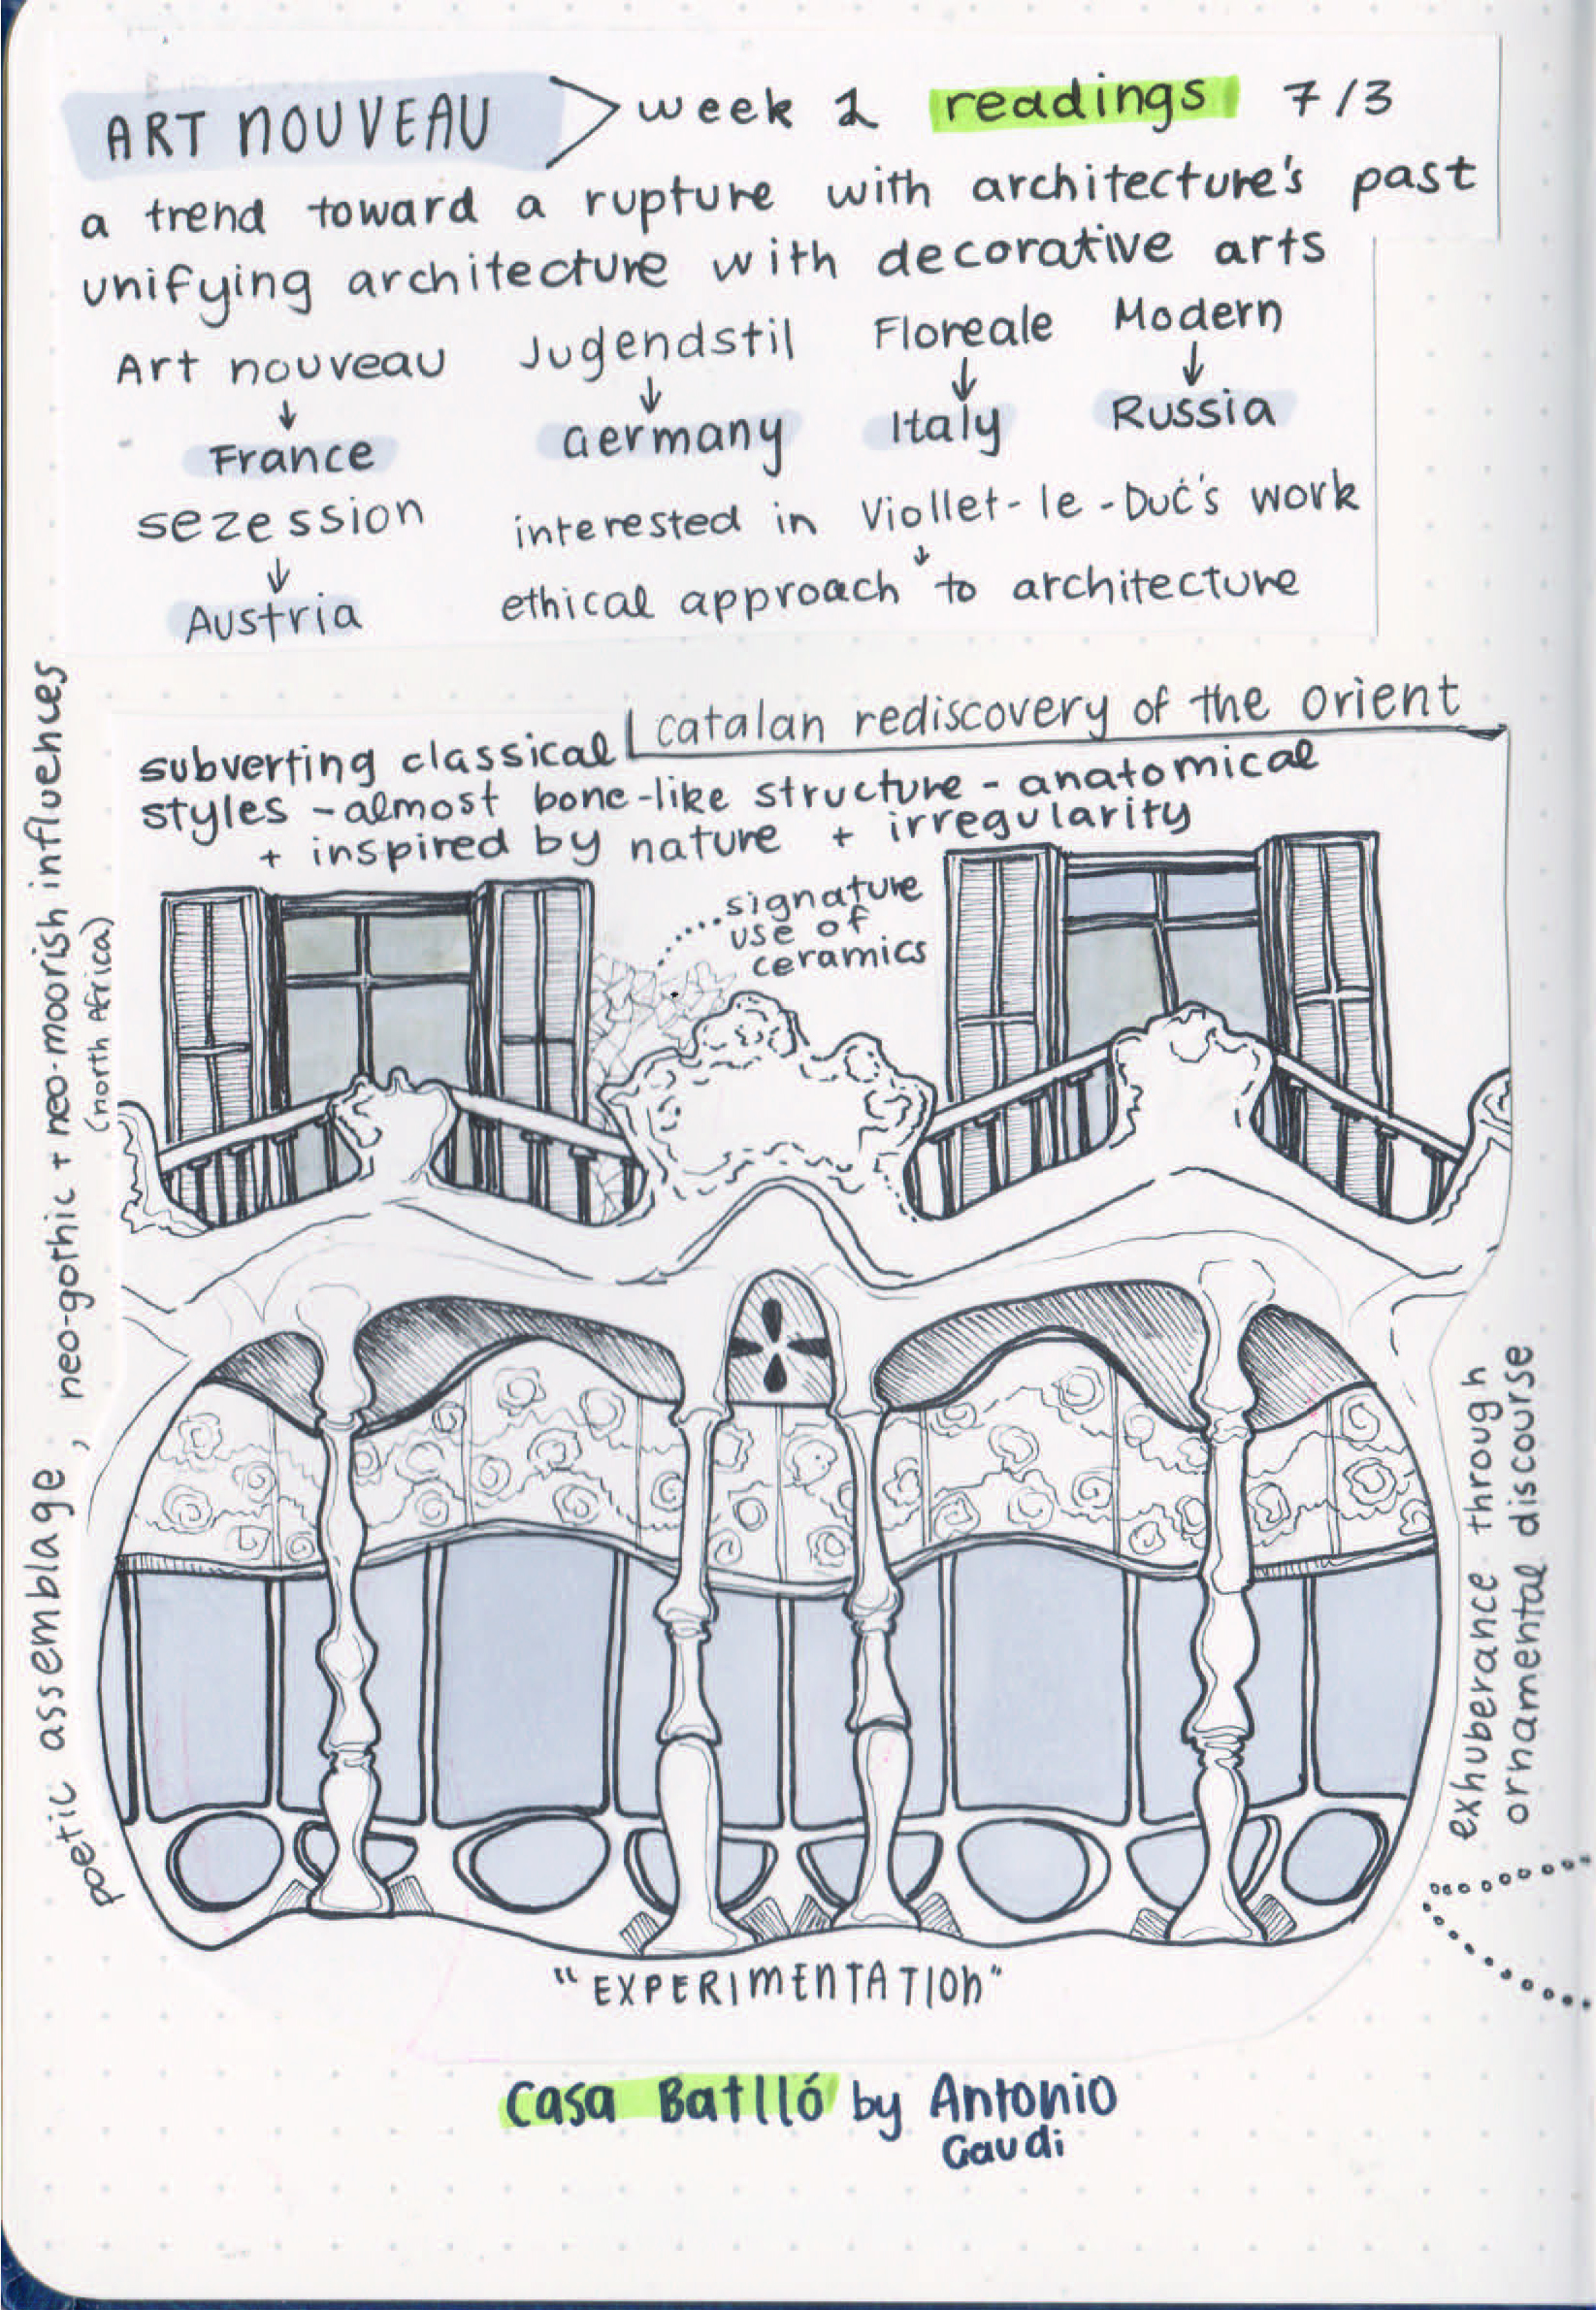 ART NOUVEAU > week 2 readings 7/3
a trend toward a rupture with architecture's past
unifying architecture with decorative arts
Art nouveau Jugendstil Floreale Modern
↓ ↓ ↓ ↓
France Germany Italy Russia
sezession
↓
Austria
interested in Viollet-le-Duc's work
↓
ethical approach to architecture
catalan rediscovery of the orient
subverting classical
styles - almost bone-like structure - anatomical
+ inspired by nature + irregularity
signature
use of
ceramics
poetic assemblage, neo-gothic + neo-moorish influences
(north Africa)
exhuberance through
ornamental discourse
"EXPERIMENTATION"
Casa Batlló by Antonio
Gaudi